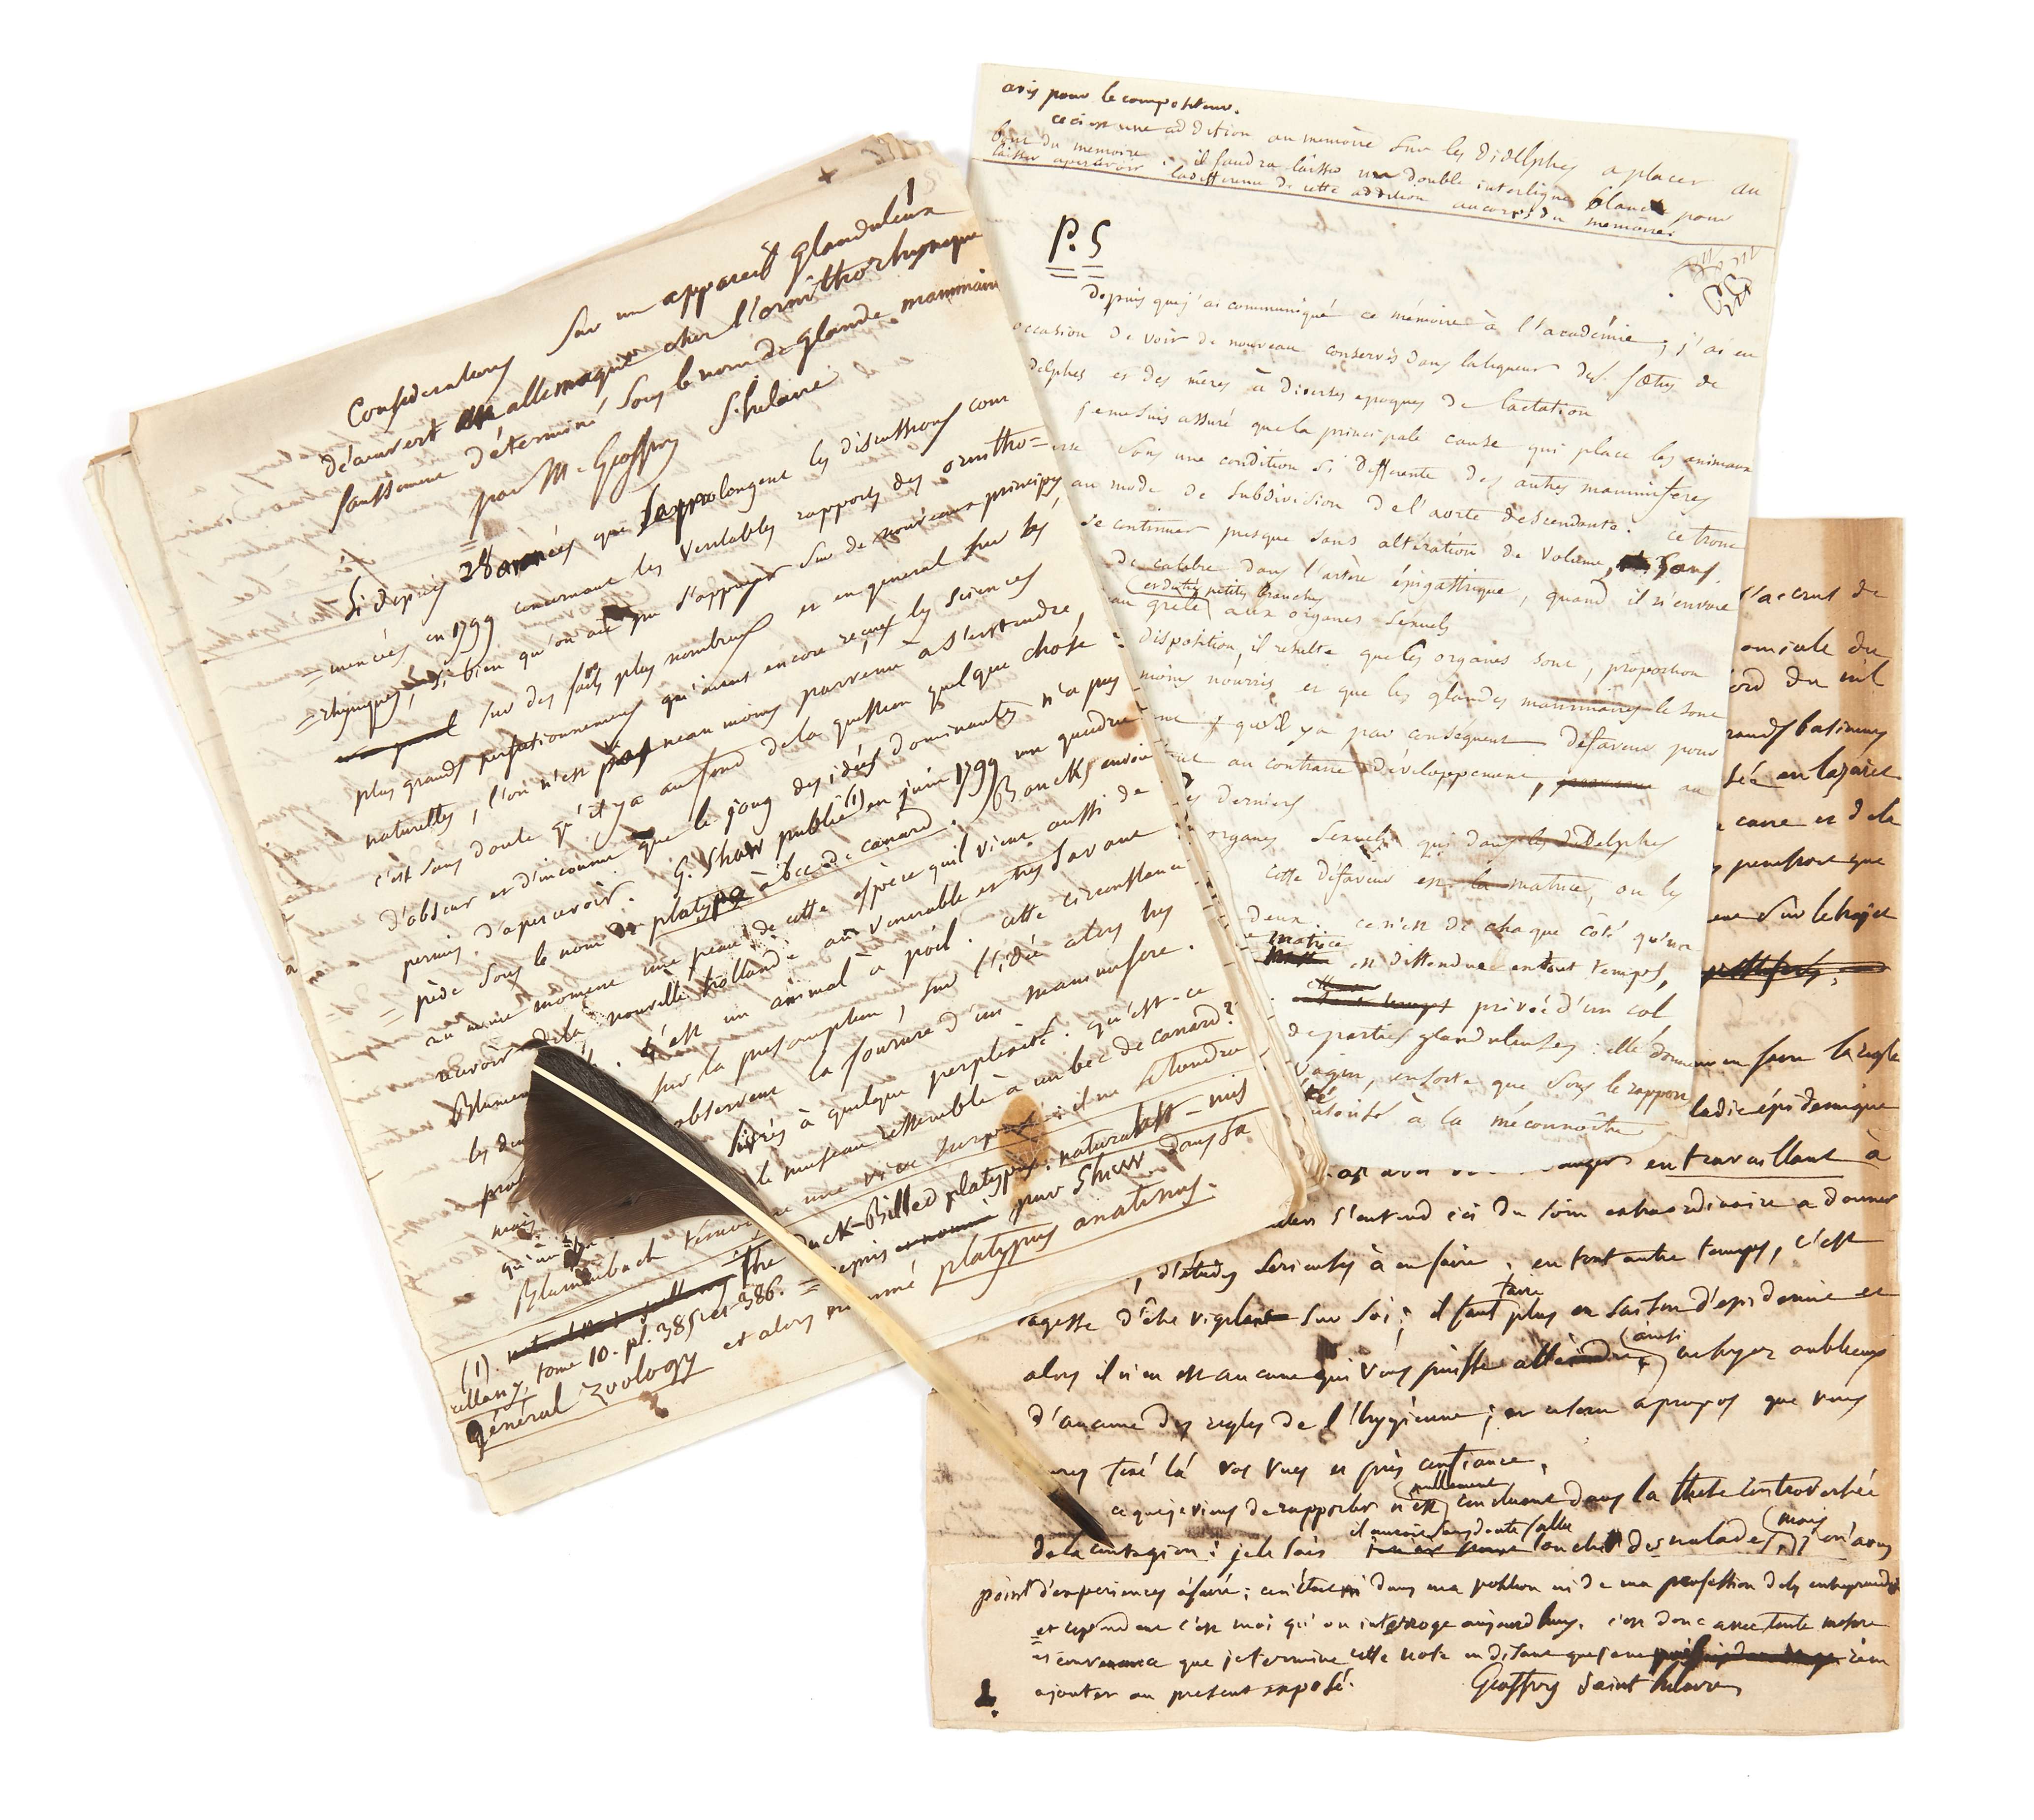 Considerations sur un appareil glanduleux
découvert en allemagne chez l'ornithorhynque
faussement déterminé sous le nom de glande mammaire
par M. Geoffroy St hilaire
Si depuis 28 années que se prolongent les discussions com
= mencées en 1799 concernant les veritables rapports des ornitho=
= rhynques, si bien qu'on ait pu s'appuyer sur de nouveaux principes
sur des faits plus nombreux et en general sur les
plus grands perfectionnemens qu'aient encore reçus les sciences
naturelles, l'on n'est pas neanmoins parvenu a s'entendre,
c'est sans doute qu'il y a au fond de la question quelque chose
d'obscur et d'inconnu que le joug des idées dominantes n'a pas
permis d'apercevoir. G. Shaw publie (1) en juin 1799 un quadru
= pède sous le nom de platype à bec de canard. Bancks envoie
au même moment une peau de cette espèce qu'il vient aussi de
recevoir de la nouvelle hollande au venerable et très savant
Blumen . c'est un animal à poil. cette circonstance
les du sur la presomption, sur l'idée alors
observent la fourure d'un mammifere.
mais livrés à quelque perplexité. qu'est-ce
qu'un le museau ressemble à un bec de canard?
Blumenbach une vive surprise; il ne s'attendoit
(1). the duck-Billed platypus: naturalist-mis
cellany, tome 10. pl. 385 et 386. = repris par Shaw dans sa
général zoology et alors nommé platypus anatinus.
avis pour le compositeur.
ceci est une addition au memoire sur les Didelphes a placer au
bout du memoire. il faudra laisser un double interligne blanc pour
laisser apercevoir la difference de cette addition au corps du memoire.
P. S
Depuis que j'ai communiqué ce mémoire à l'académie; j'ai eu
occasion de voir de nouveau conservés dans la liqueur des fœtus de
delphes et des mères à diverses epoques de lactation
je me suis assuré que la principale cause qui place les animaux
sous une condition si differente des autres mammifères
au mode de subdivision de l'aorte descendante. ce tronc
se continuer presque sans altération de volume, sans
de calibre dans l'artère épigastrique, quand il n'envoie
(et dites petites branches
au grele) aux organes sexuels
disposition, il resulte que les organes sont, proportion
moins nourris et que les glandes mammaires le sont
qu'il y a par consequent défaveur pour
au contraire développement, au
derniers
organes sexuels qui dans les didelphes
cette défaveur est la matrice, ou les
deux. ce n'est de chaque côté qu'une
matrice
est distendue en tout temps,
elle
privée d'un col
de parties glanduleuses: elle
vagin, ensorte que sous le rapport
autorité à la méconnoitre
l'accent de
omicale du
ord du nil
rands batimens
sée en lazaret
carre et de la
penetrois que
sur le trajet
faire la regle
ladie épidemique
dangers en travaillant à
s'entend ici du soin extraordinaire a donner
, d'études serieuses à en faire; en tout autre temps, c'est
faire
agesse d'être vigilant sur soi; il faut plus en saison d'epidemie et
(ainsi
alors il n'en est aucune qui vous puisse atteindre, n'ayez oublieux
d'aucune des regles de l'hygienne; et a propos que vous
tiré là vos vues et pris confiance.
(nullement
ce que je viens de rapporter n'est) concluant dans la these controversée
il auroit sans doute fallu (mais
de la contagion: je le sais toucher des malades,) je n'avois
point d'experiences à faire; ce n'étoit ni dans ma position ni de ma profession de les entreprendre
et cependant c'est moi qu'on interroge aujourd'huy. c'est donc avec toute mesure
et convenance que je termine cette note en disant que je ne rien
ajouter au present exposé. Geoffroy Saint hilaire